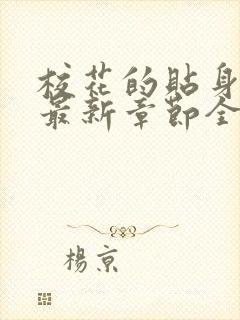 校花的貼身
最新章節全
楊京